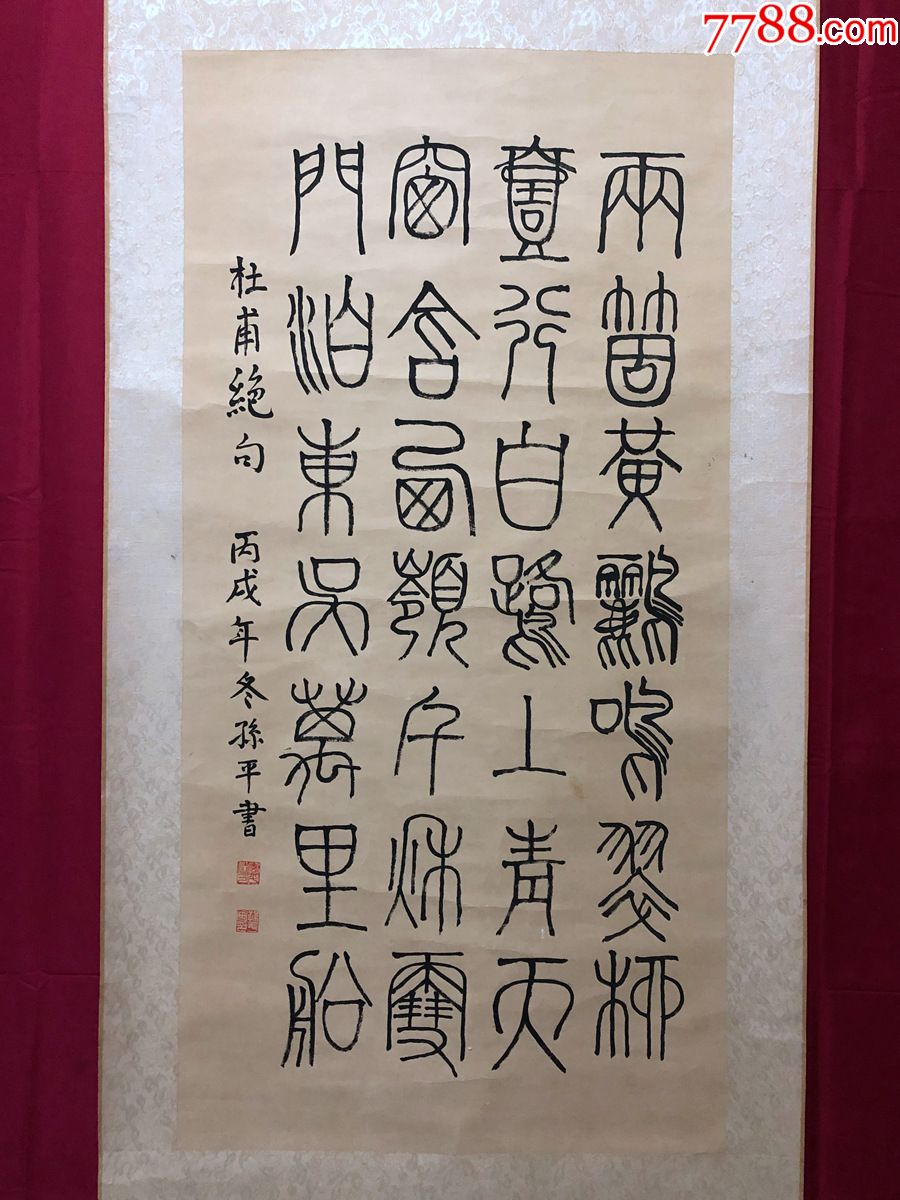 7788.com
兩箇黃鸝鳴翠柳
壹行白鷺上青天
窗含西嶺千秋雪
門泊東吳萬里船
杜甫絕句 丙戌年冬孫平書